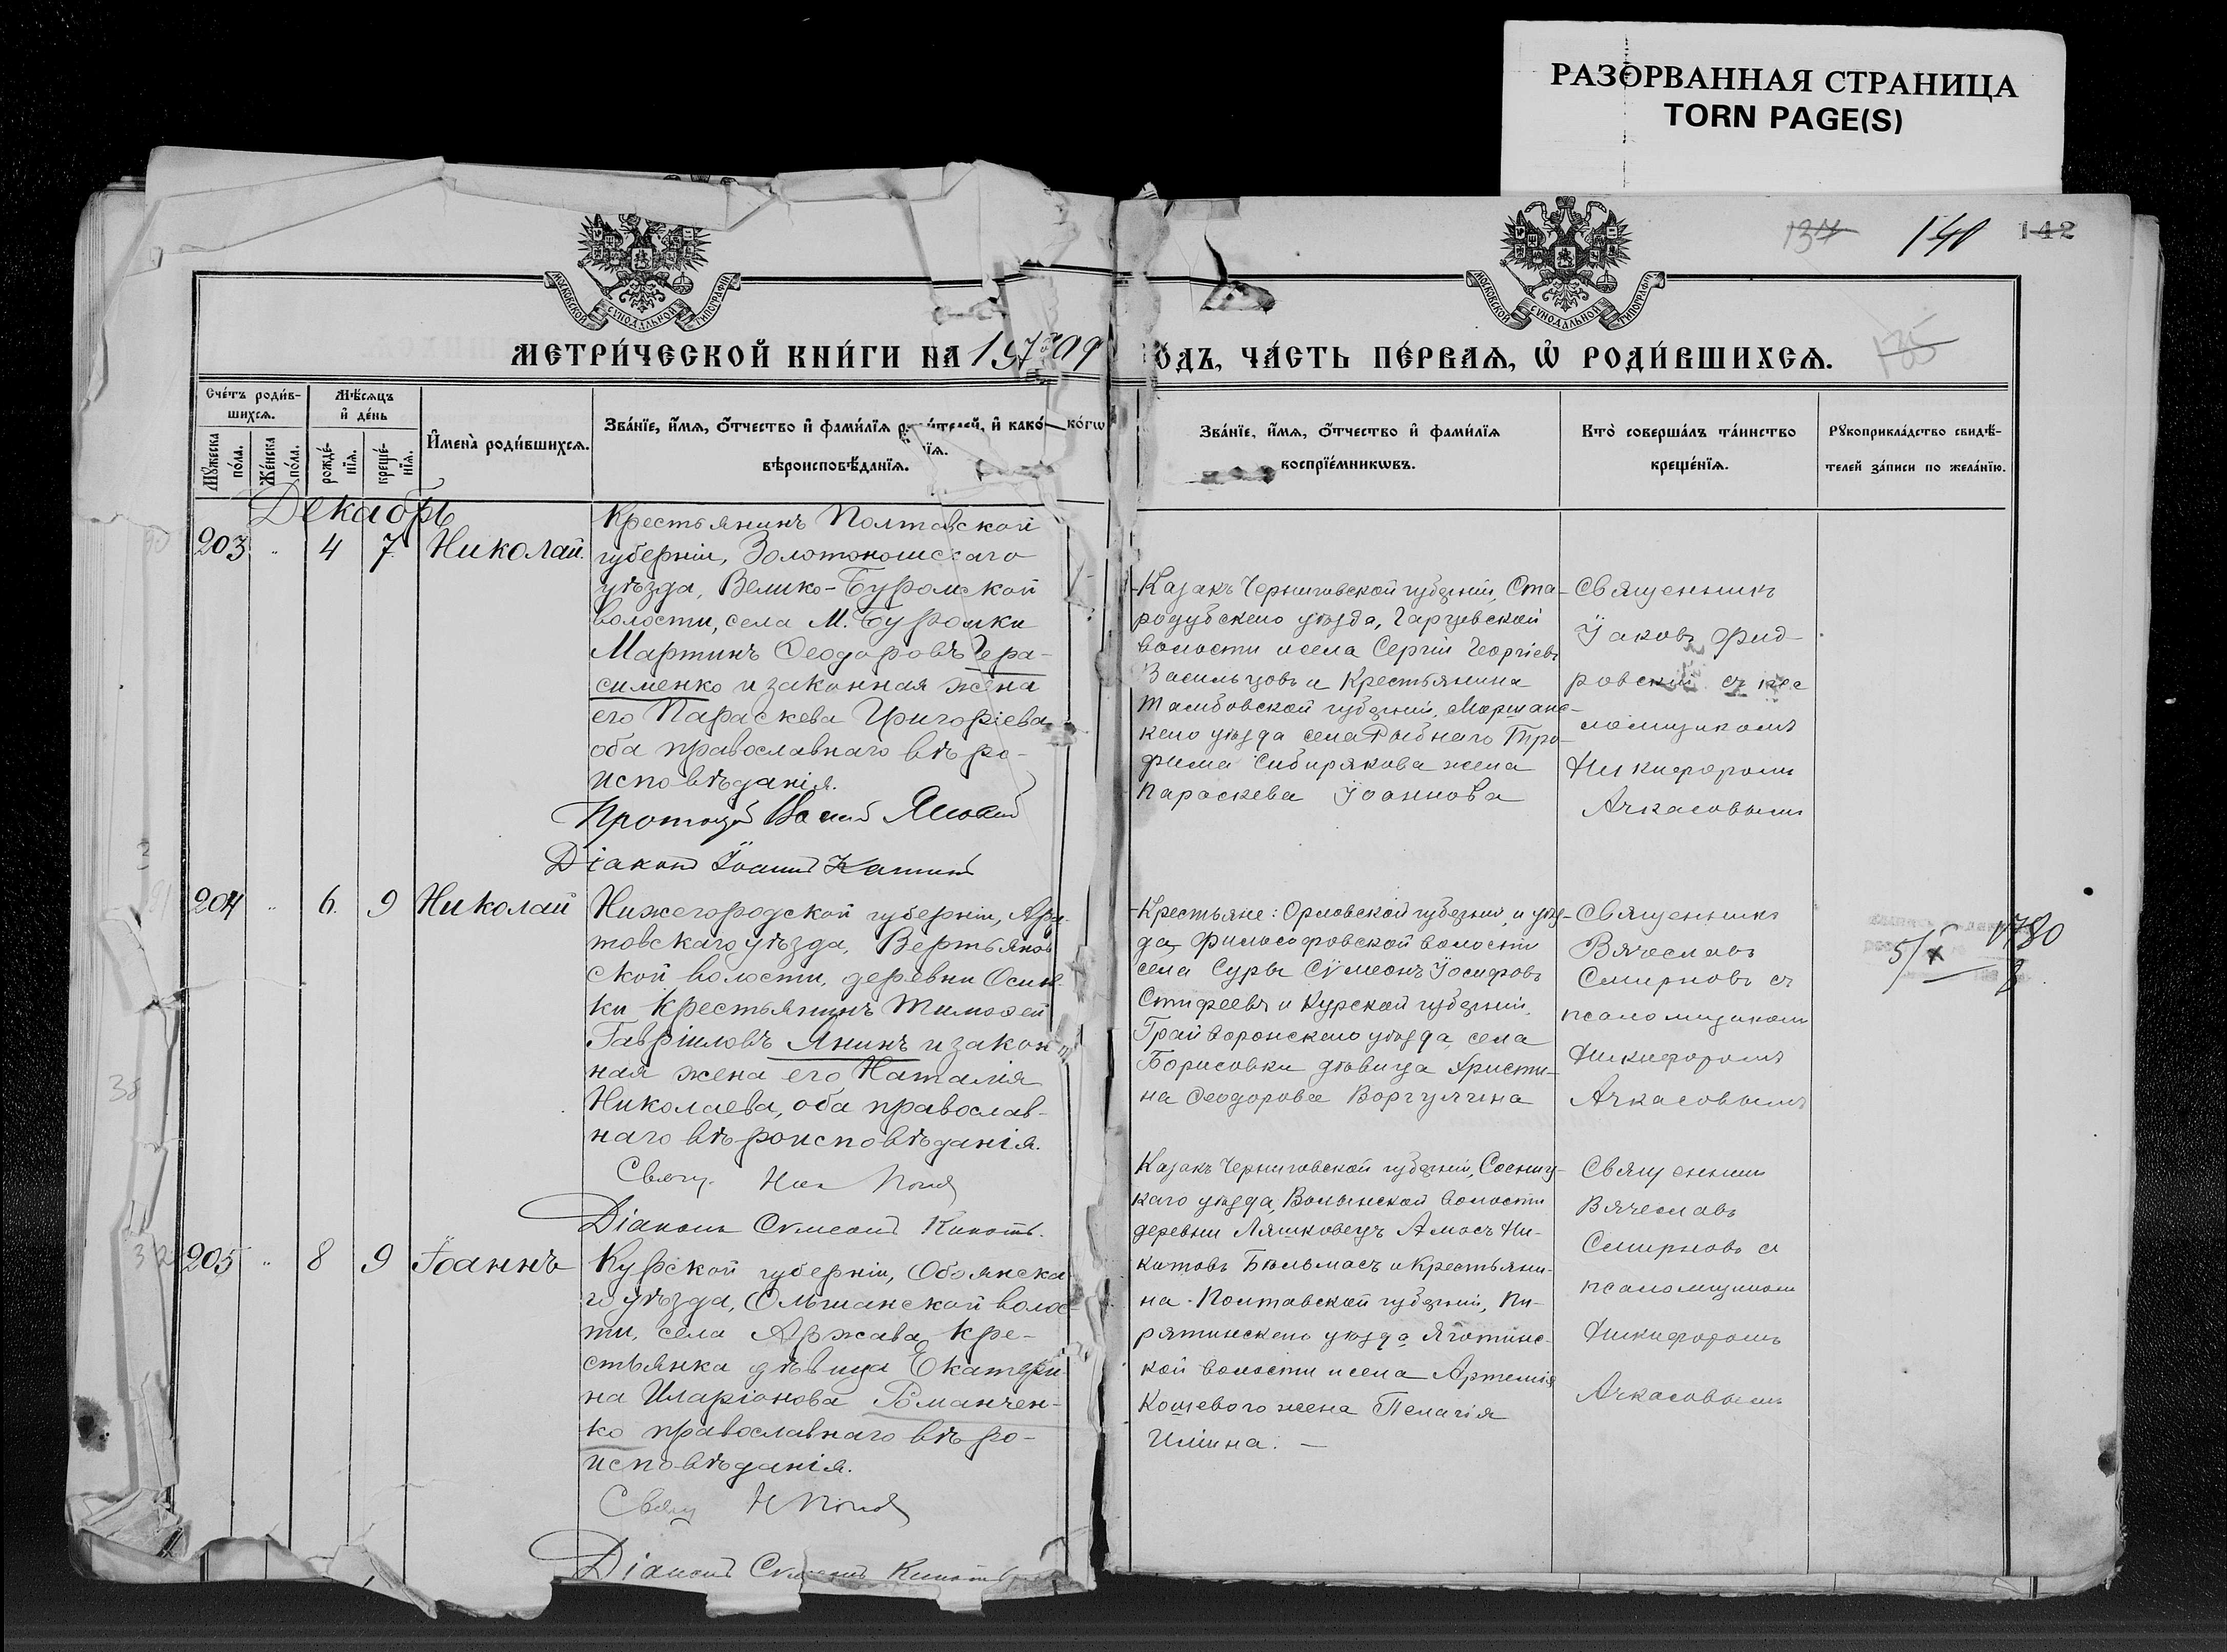 РАЗОРВАННАЯ СТРАНИЦА
TORN PAGE(S)
134 140 142
135
МОСКОВСКОЙ СѴНОДАЛЬНОЙ ТИПОГРАФІИ
МОСКОВСКОЙ СѴНОДАЛЬНОЙ ТИПОГРАФІИ
МЕТРИ́ЧЕСКОЙ КНИ́ГИ НА
О́ДЪ, ЧА́СТЬ ПЕ́РВАѦ, Ѿ РОДИ́ВШИХСѦ.
Сче́тъ роди́в-
шихсѧ.
Мꙋжеска по́ла.
Же́нска по́ла.
Мѣ́сѧцъ
и҆ де́нь
рожде́-
нїѧ.
креще́-
нїѧ.
И҆мена̀ роди́вшихсѧ.
Зва́нїе, и҆́мѧ, ѻ҆́тчество и҆ фами́лїѧ роди́телей, и҆ како́-
вѣроисповѣ́данїѧ.
Зва́нїе, и҆́мѧ, ѻ҆́тчество и҆ фами́лїѧ
воспрїе́мникѡвъ.
Кто̀ соверша́лъ та́инство
креще́нїѧ.
Рꙋкоприкла́дство свидѣ́-
телей за́писи по жела́нїю.
Декабрь
203 " 4 7 Николай.
Крестьянинъ Полтавской
губерніи, Золотоношскаго
уѣзда, Велико-Буромской
волости, села М. Буромки
Мартинъ Ѳеодоровъ Гера-
сименко и законная жена
его Параскева Григоріева
оба православнаго вѣро-
исповѣданія.
Діаконъ Іоаннъ
Казакъ Черниговской губерніи, Ста-
родубскаго уѣзда, Гарцевской
волости и села Сергій Георгіевъ
Васильцовъ и Крестьянина
Тамбовской губерніи, Моршанс-
каго уѣзда села Рыбнаго Тро-
фима Сибирякова жена
Параскева Іоаннова
Священникъ
Іаковъ
съ
ломщикомъ
Никифоромъ
Ачкасовымъ
204 " 6 9 Николай
Нижегородской губерніи, Арда-
товскаго уѣзда, Вертьянов-
ской волости, деревни Осин-
ки Крестьянинъ Тимоѳей
Гавріиловъ Янинъ и закон
ная жена его Наталія
Николаева, оба православ-
наго вѣроисповѣданія.
Свящ. Попов
Діаконъ Сѵмеонъ
Крестьяне: Орловской губерніи и уѣз-
да, Философовской волости
села Суры Сѵмеонъ Іосифовъ
Стифеевъ и Курской губерніи,
Грайворонскаго уѣзда, села
Борисовки дѣвица Христи-
на Ѳеодорова Воргулина
Священникъ
Вячеславъ
Смирновъ съ
псаломщикомъ
Никифоромъ
Ачкасовымъ
205 " 8 9 Іоаннъ
Курской губерніи, Обоянска-
го уѣзда, Ольшанской волос-
ти, села Аржава, кре-
стьянка дѣвица Екатери-
на Иларіонова Романчен-
ко православнаго вѣро-
исповѣданія.
Свящ Н Попов
Діаконъ Сѵмеонъ
Казакъ Черниговской губерніи, Сосниц-
каго уѣзда, Волынской волости
деревни Ляшковецъ Амосъ Ни-
китовъ Бѣльмасъ и Крестьяни-
на Полтавской губерніи, Пи-
рятинскаго уѣзда Яготинс-
кой волости и села Артемія
Кошевого жена Пелагія
Иліина. —
Священникъ
Вячеславъ
Смирновъ съ
псаломщикомъ
Никифоромъ
Ачкасовымъ